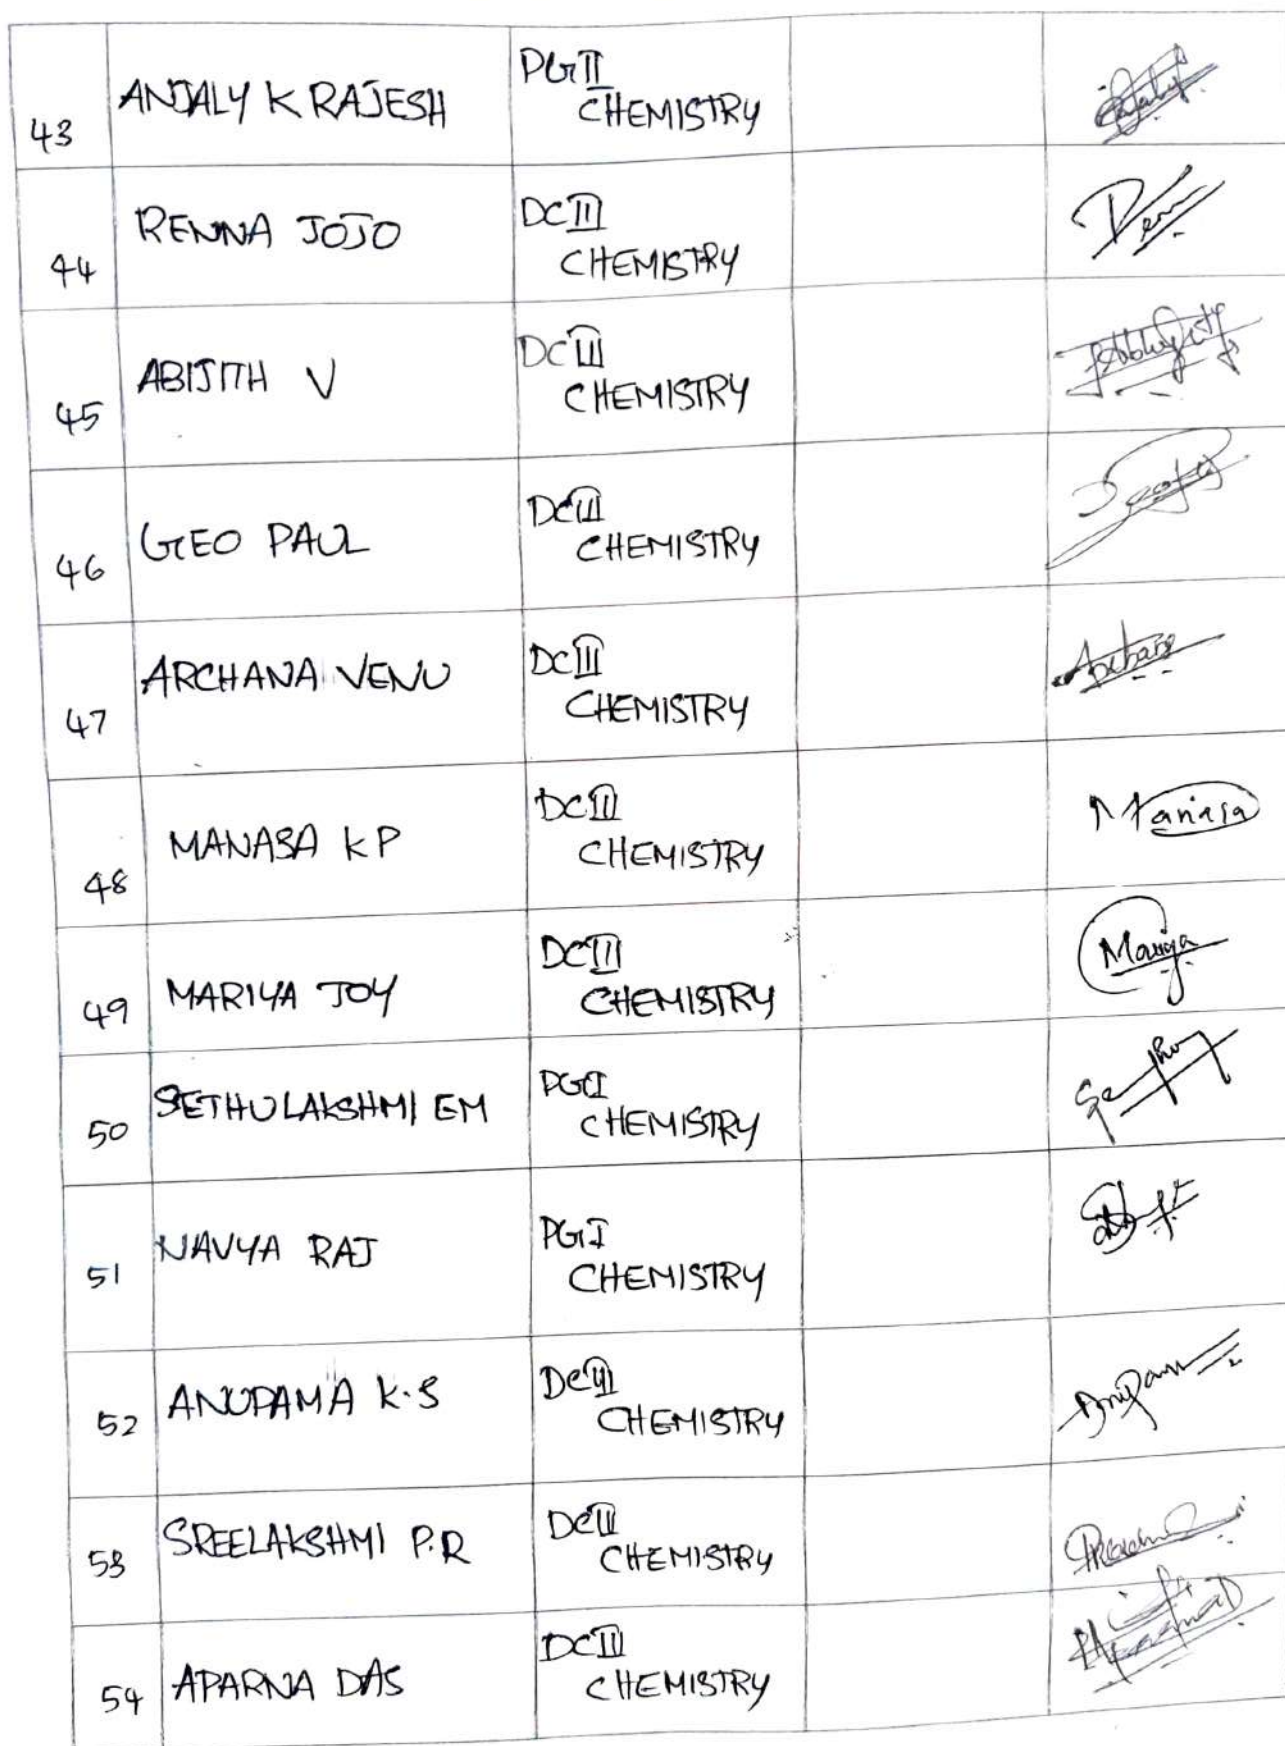 43 ANJALY K RAJESH PG II
CHEMISTRY
44 RENNA JOJO DC III
CHEMISTRY
45 ABIJITH V DC III
CHEMISTRY
46 GEO PAUL DC III
CHEMISTRY
47 ARCHANA VENU DC III
CHEMISTRY
48 MANASA K P DC III
CHEMISTRY
Manasa
49 MARIYA JOY DC III
CHEMISTRY
Mariya
50 SETHULAKSHMI EM PG I
CHEMISTRY
51 NAVYA RAJ PG I
CHEMISTRY
52 ANUPAMA K.S DC III
CHEMISTRY
53 SREELAKSHMI P.R DC III
CHEMISTRY
54 APARNA DAS DC III
CHEMISTRY